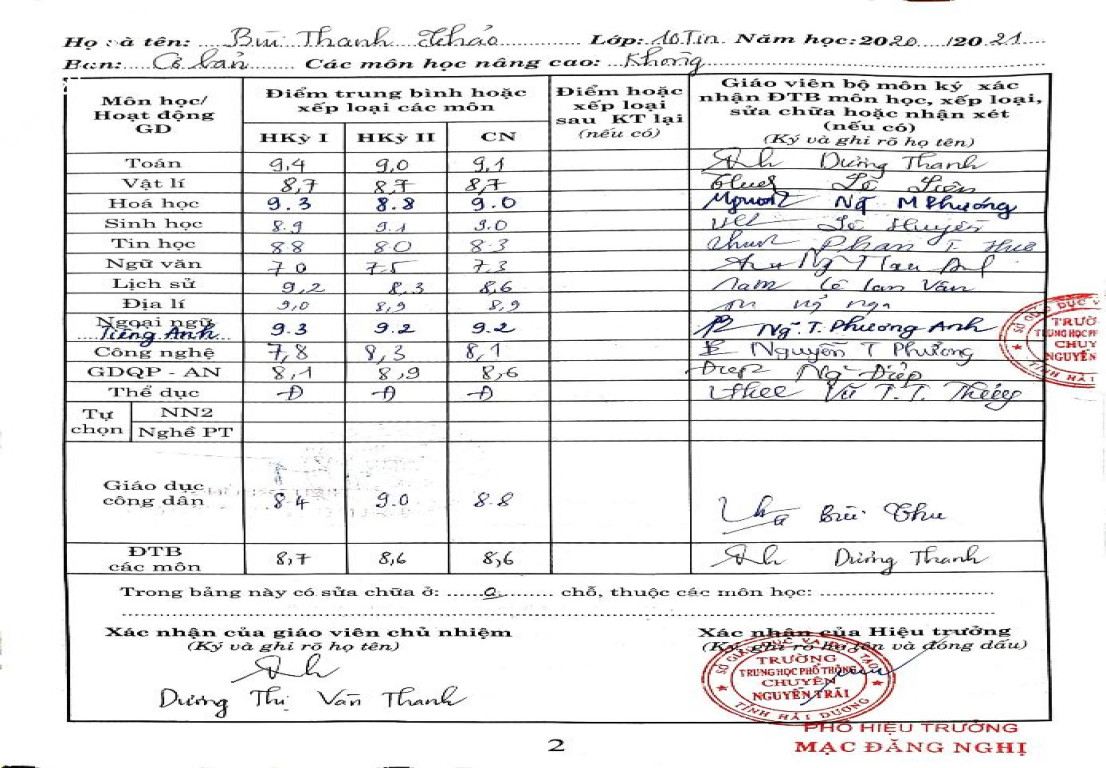 Họ và tên: Bùi Thanh Thảo Lớp: 10 Tin Năm học: 2020 /2021
Ban: Cơ bản Các môn học nâng cao: Không
Môn học/ Hoạt động GD
Điểm trung bình hoặc xếp loại các môn
HKỳ I HKỳ II CN
Điểm hoặc xếp loại sau KT lại (nếu có)
Giáo viên bộ môn ký xác nhận ĐTB môn học, xếp loại, sửa chữa hoặc nhận xét (nếu có) (Ký và ghi rõ họ tên)
Toán 9,4 9,0 9,1 Dương Thanh
Vật lí 8,7 8,7 8,7 Lê Liên
Hoá học 9.3 8.8 9.0 Ng M Phương
Sinh học 8.9 9.1 9.0 Lê Huyền
Tin học 8.8 8.0 8.3 Phan T. Huê
Ngữ văn 7.0 7.5 7.3
Lịch sử 9,2 8,3 8,6 Lê Lan Vân
Địa lí 9,0 8,9 8,9
Ngoại ngữ
Tiếng Anh 9.3 9.2 9.2 Ng. T. Phương Anh
Công nghệ 7,8 8,3 8,1 Nguyễn T Phượng
GDQP - AN 8,1 8,9 8,6 Ng Điệp
Thể dục Đ Đ Đ Vũ T. T.
Tự chọn NN2
Nghề PT
Giáo dục công dân 8.4 9.0 8.8 Bùi Thu
ĐTB các môn 8,7 8,6 8,6 Dương Thanh
Trong bảng này có sửa chữa ở: 0 chỗ, thuộc các môn học:
Xác nhận của giáo viên chủ nhiệm
(Ký và ghi rõ họ tên)
Dương Thị Vân Thanh
Xác nhận của Hiệu trưởng
(Ký, ghi rõ họ tên và đóng dấu)
SỞ GIÁO DỤC VÀ ĐÀO TẠO
TRƯỜNG
TRUNG HỌC PHỔ THÔNG
CHUYÊN
NGUYỄN TRÃI
TỈNH HẢI DƯƠNG
PHÓ HIỆU TRƯỞNG
MẠC ĐĂNG NGHỊ
2